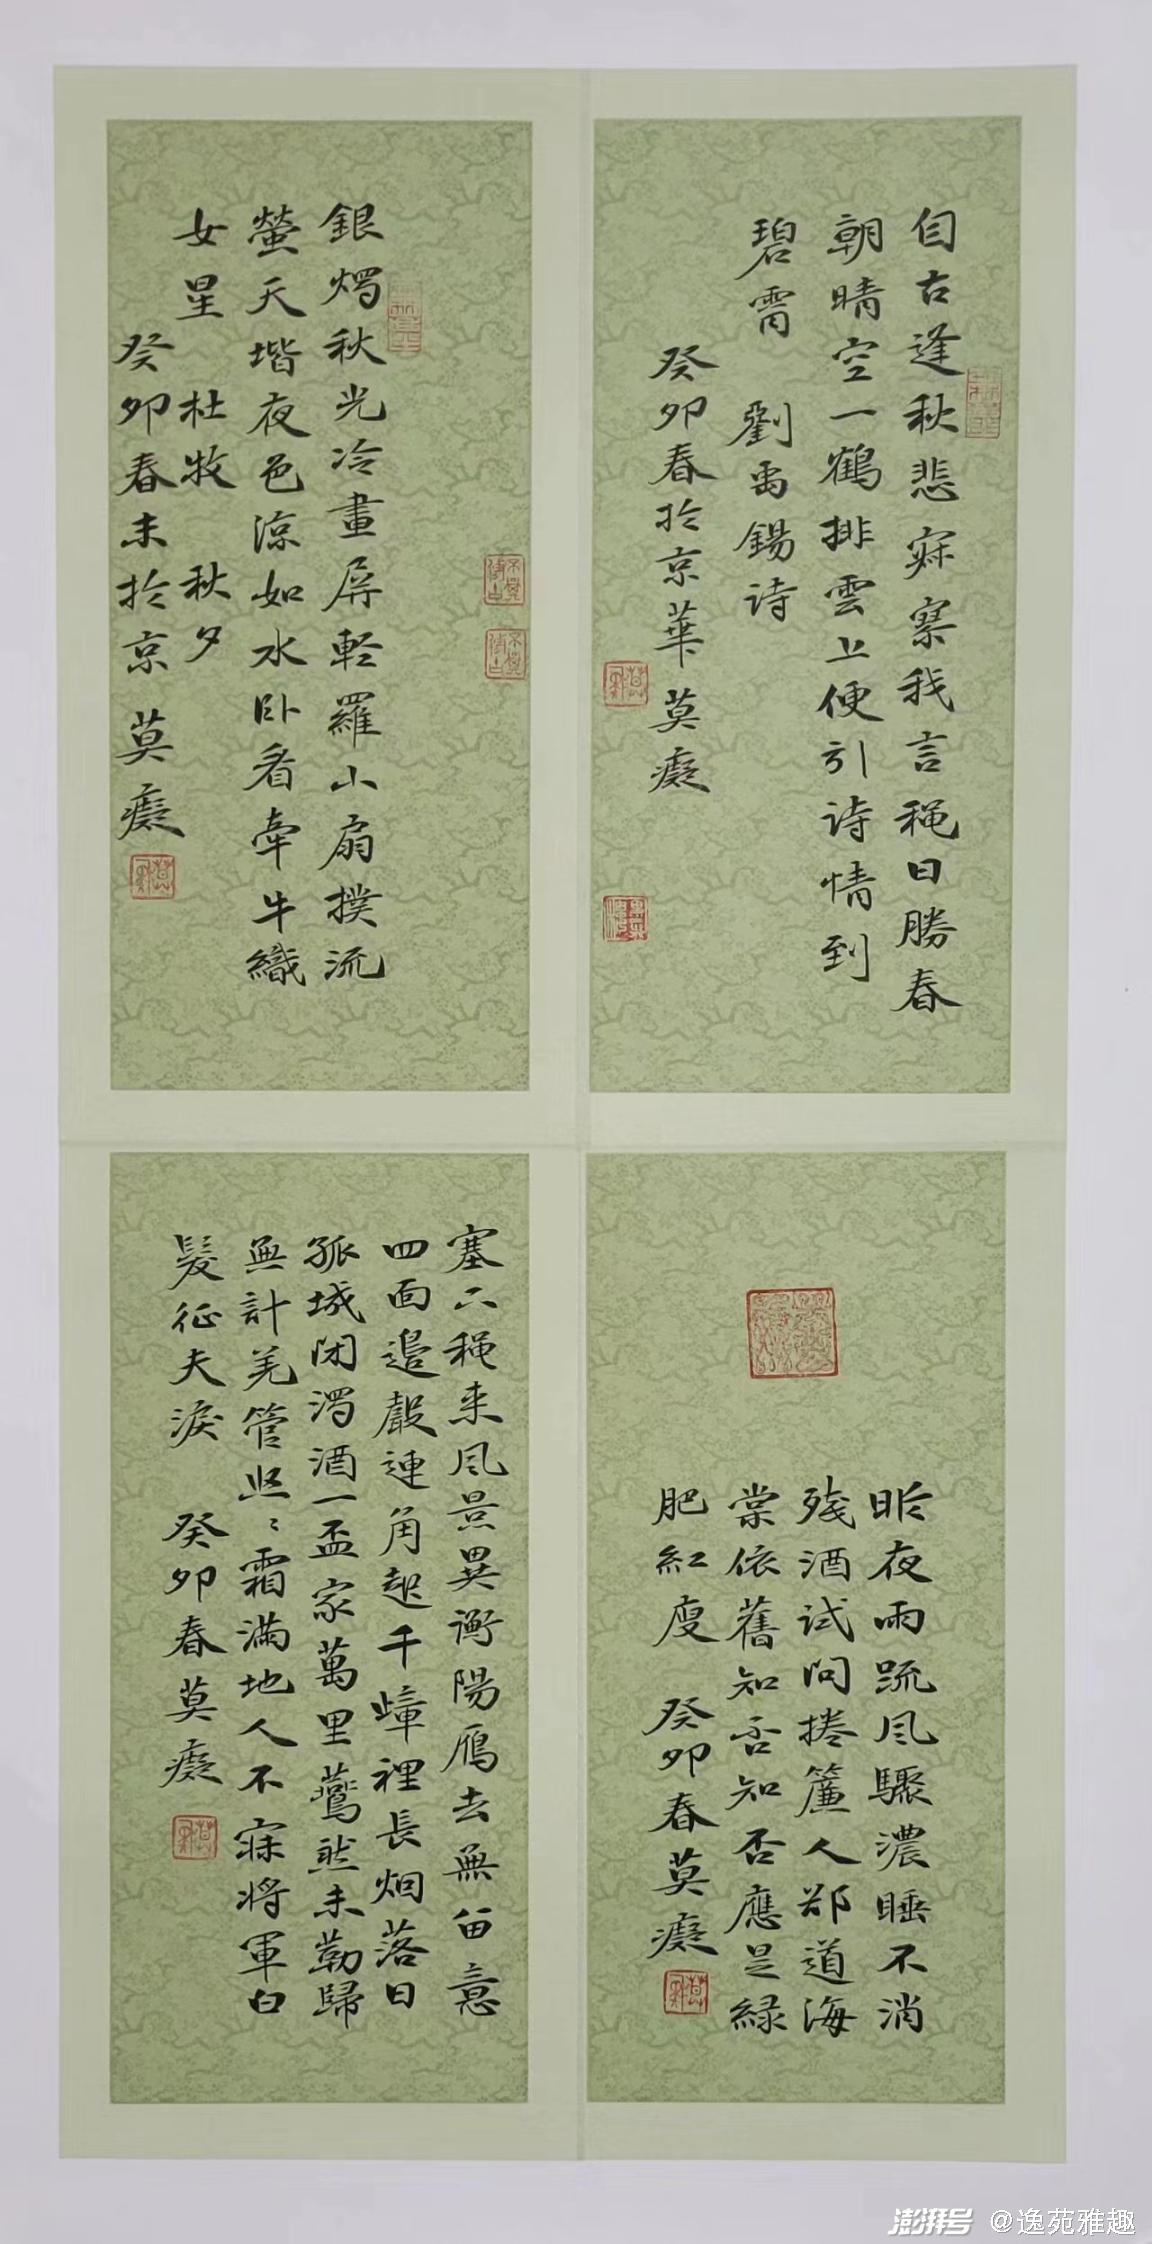 自古逢秋悲寂寥我言穐日勝春
朝晴空一鶴排雲上便引诗情到
碧霄 劉禹錫诗
癸卯春於京華 莫癡
銀燭秋光冷畫屏輕羅小扇撲流
螢天堦夜色涼如水卧看牽牛織
女星 杜牧 秋夕
癸卯春末於京 莫癡
昨夜雨疏风驟濃睡不消
残酒试问捲簾人郤道海
棠依舊知否知否應是緑
肥紅瘦 癸卯春莫癡
塞下穐来风景異衡陽雁去無留意
四面邉聲連角起千嶂裡長烟落日
孤城闭濁酒一盃家萬里燕然未勒歸
無計羌管悠〻霜滿地人不寐将軍白
髪征夫淚 癸卯春莫癡
澎湃号 @逸苑雅趣